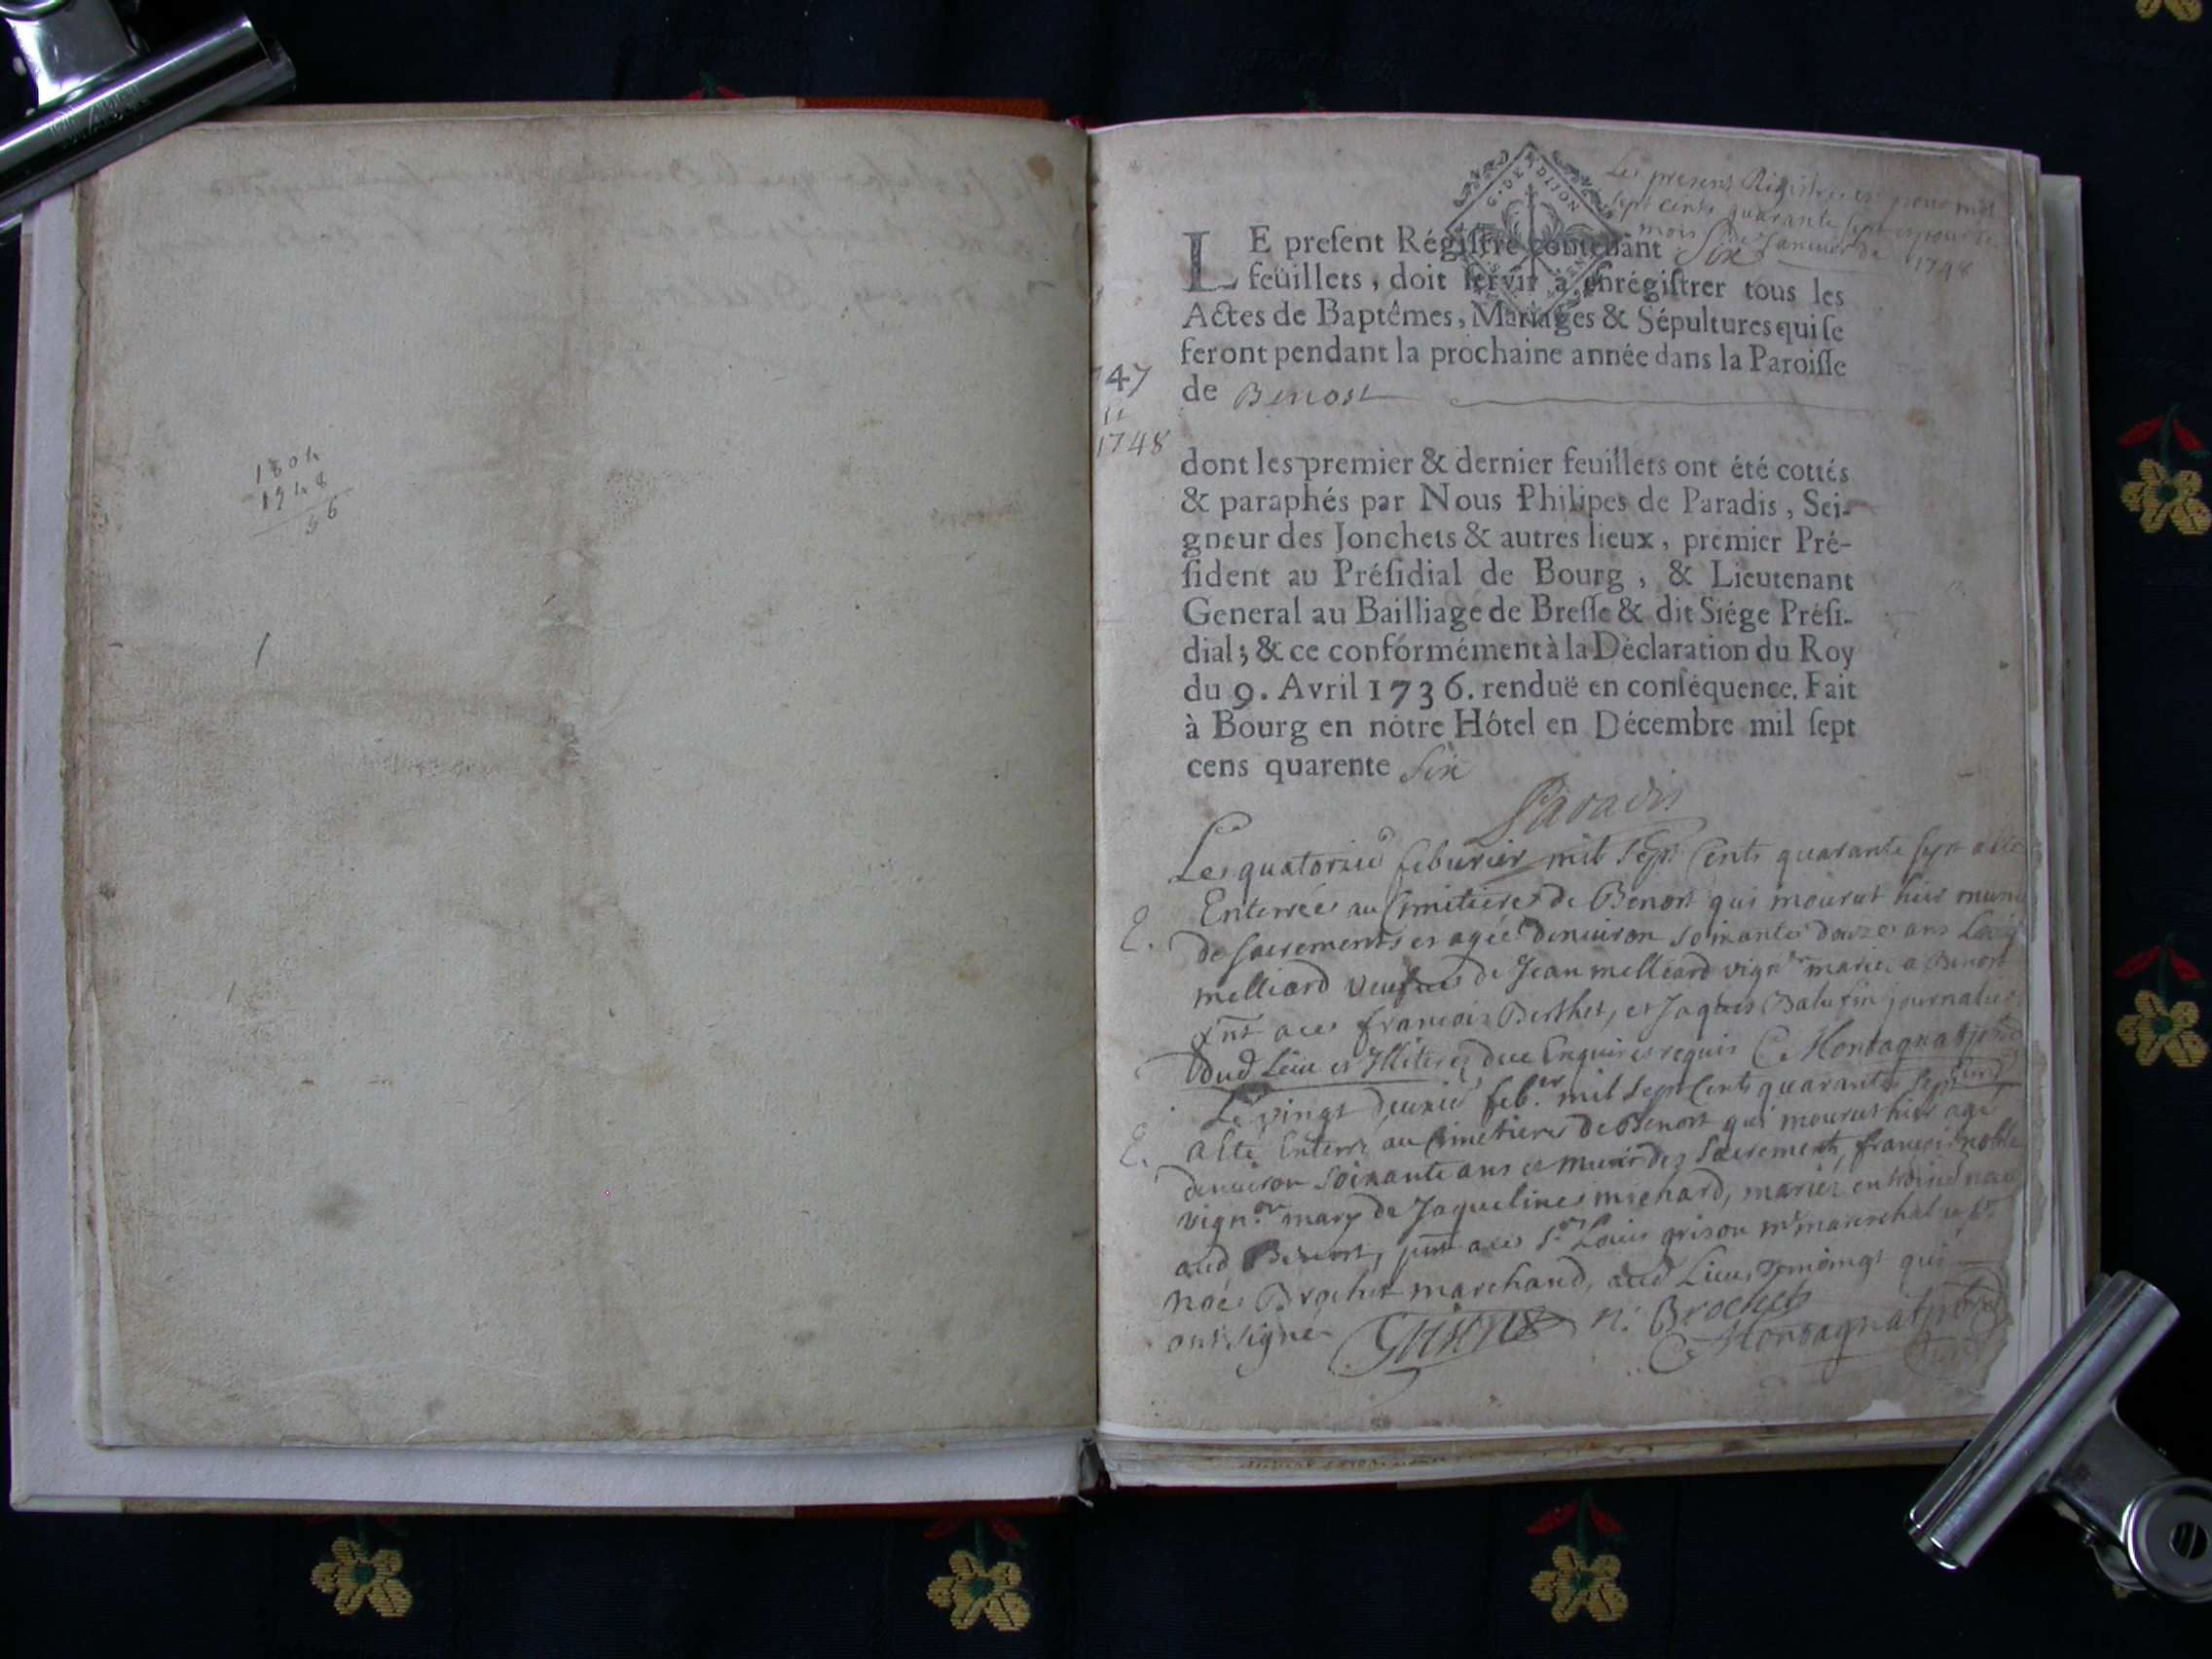 1804
1748
56
G. DE DIJON
Le present Registre est pour mil
sept cents quarante sept et pour le
mois de Janvier de 1748
LE preſent Régiſtre contenant Six
feüillets, doit ſervir à enrégiſtrer tous les
Actes de Baptêmes, Mariages & Sépultures qui ſe
feront pendant la prochaine année dans la Paroiſſe
de Benost
747
1748
dont les premier & dernier feuillets ont été cottés
& paraphés par Nous Philipes de Paradis, Sei-
gneur des Jonchets & autres lieux, premier Pré-
ſident au Préſidial de Bourg, & Lieutenant
General au Bailliage de Breſſe & dit Siége Préſi-
dial; & ce conformément à la Déclaration du Roy
du 9. Avril 1736. renduë en conſéquence. Fait
à Bourg en nôtre Hôtel en Décembre mil ſept
cens quarente Six
Paradis
Le quatorzie feburier mil sept Cents quarante sept a ete
E. Enterrée au Cimitiere de Benost qui mourut hier munie
de sacrements et agée denuiron soixante douze ans
melliard veufue de Jean melliard vign marié a Benost
pnt aues francois Berthet, et Jaques Balufin journalier
dud Lieu et Illiterez de ce Enquis et requis C. Montagnat
Le vingt deuxie feb.er mil sept Cents quarante sept
E. a Eté Enterré au Cimetiere de Benost qui mourut hier agé
denuiron soixante ans et munir des sacrements, francois noble
vign.on mary de Jaqueline michard, mariéz
aud Benost, pnt aues Sr Louis grison me mareschal et
noé Brochet marchand, aud Lieu, temoingt qui
ont signé Grison n: Brochet
C. Montagnat